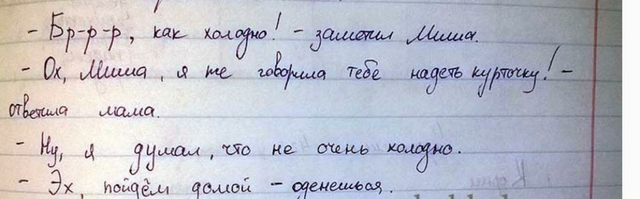 - Бр-р-р, как холодно! - заметил Миша.
- Ох, Миша, я же говорила тебе надеть курточку! -
ответила мама.
- Ну, я думал, что не очень холодно.
- Эх, пойдём домой - оденешься.